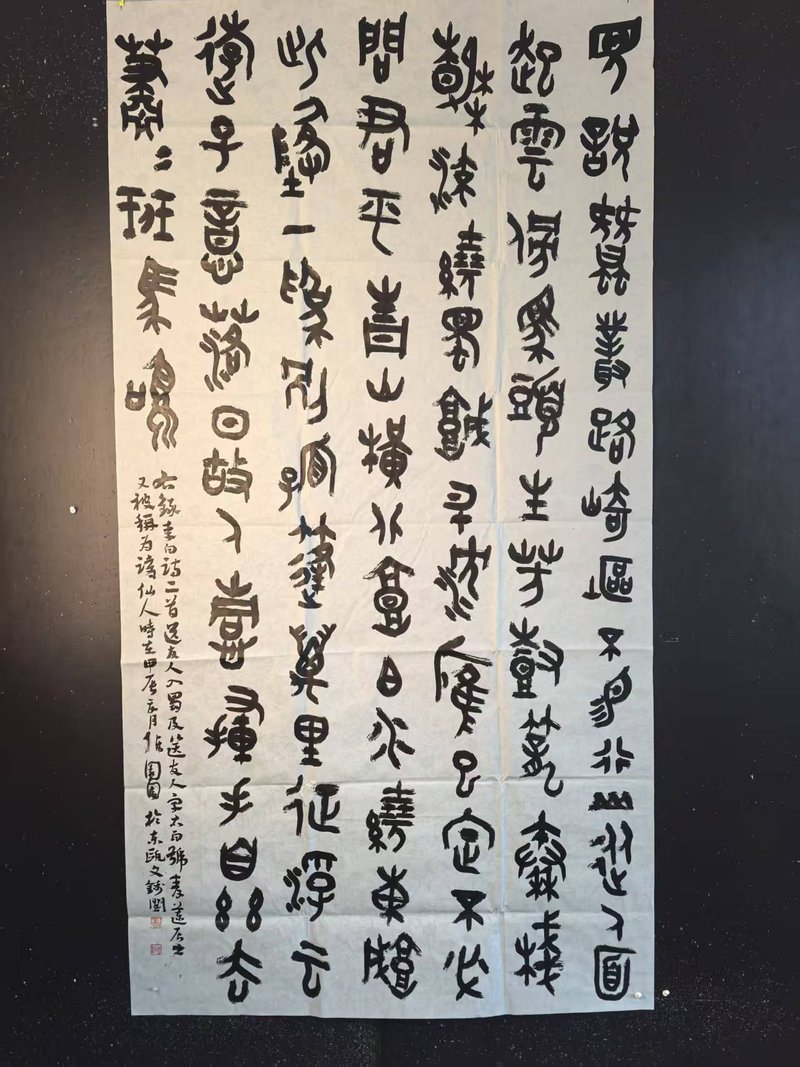 見説蠶叢路崎嶇不易行山從人面
起雲傍馬頭生芳樹籠秦棧
春流繞蜀城升沈應已定不必
問君平青山橫北郭白水繞東城
此地一為別孤蓬萬里征浮云
遊子意落日故人情揮手自茲去
蕭〻班馬鳴
右錄李白詩二首送友人入蜀及送友人字太白號青蓮居士
又被稱為謫仙人時在甲辰夏月張園園於东甌文錦閣